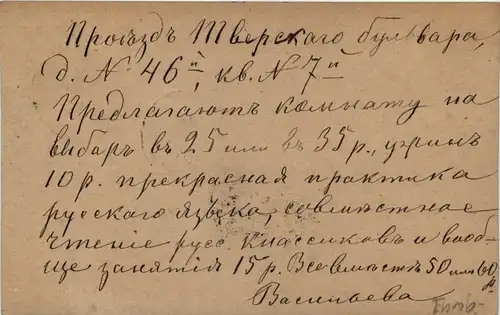 Проѣздъ Тверскаго бульвара,
д. N 46й, кв. N 7й
Предлагаютъ комнату на
выборъ въ 25 или въ 35 р., ужинъ
10 р. прекрасная практика
русскаго языка, совмѣстное
чтеніе русс. классиковъ и вооб-
ще занятія 15 р. Все вмѣстѣ 50 или 60 р
Васильева